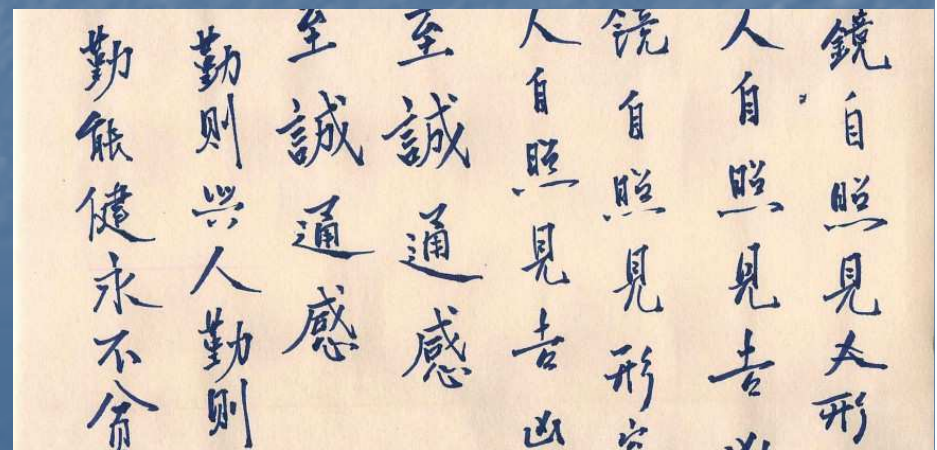 鏡自照見人形
人自照見吉凶
鏡自照見形容
人自照見吉凶
至誠通感
至誠通感
勤則興人勤則
勤能健永不貧